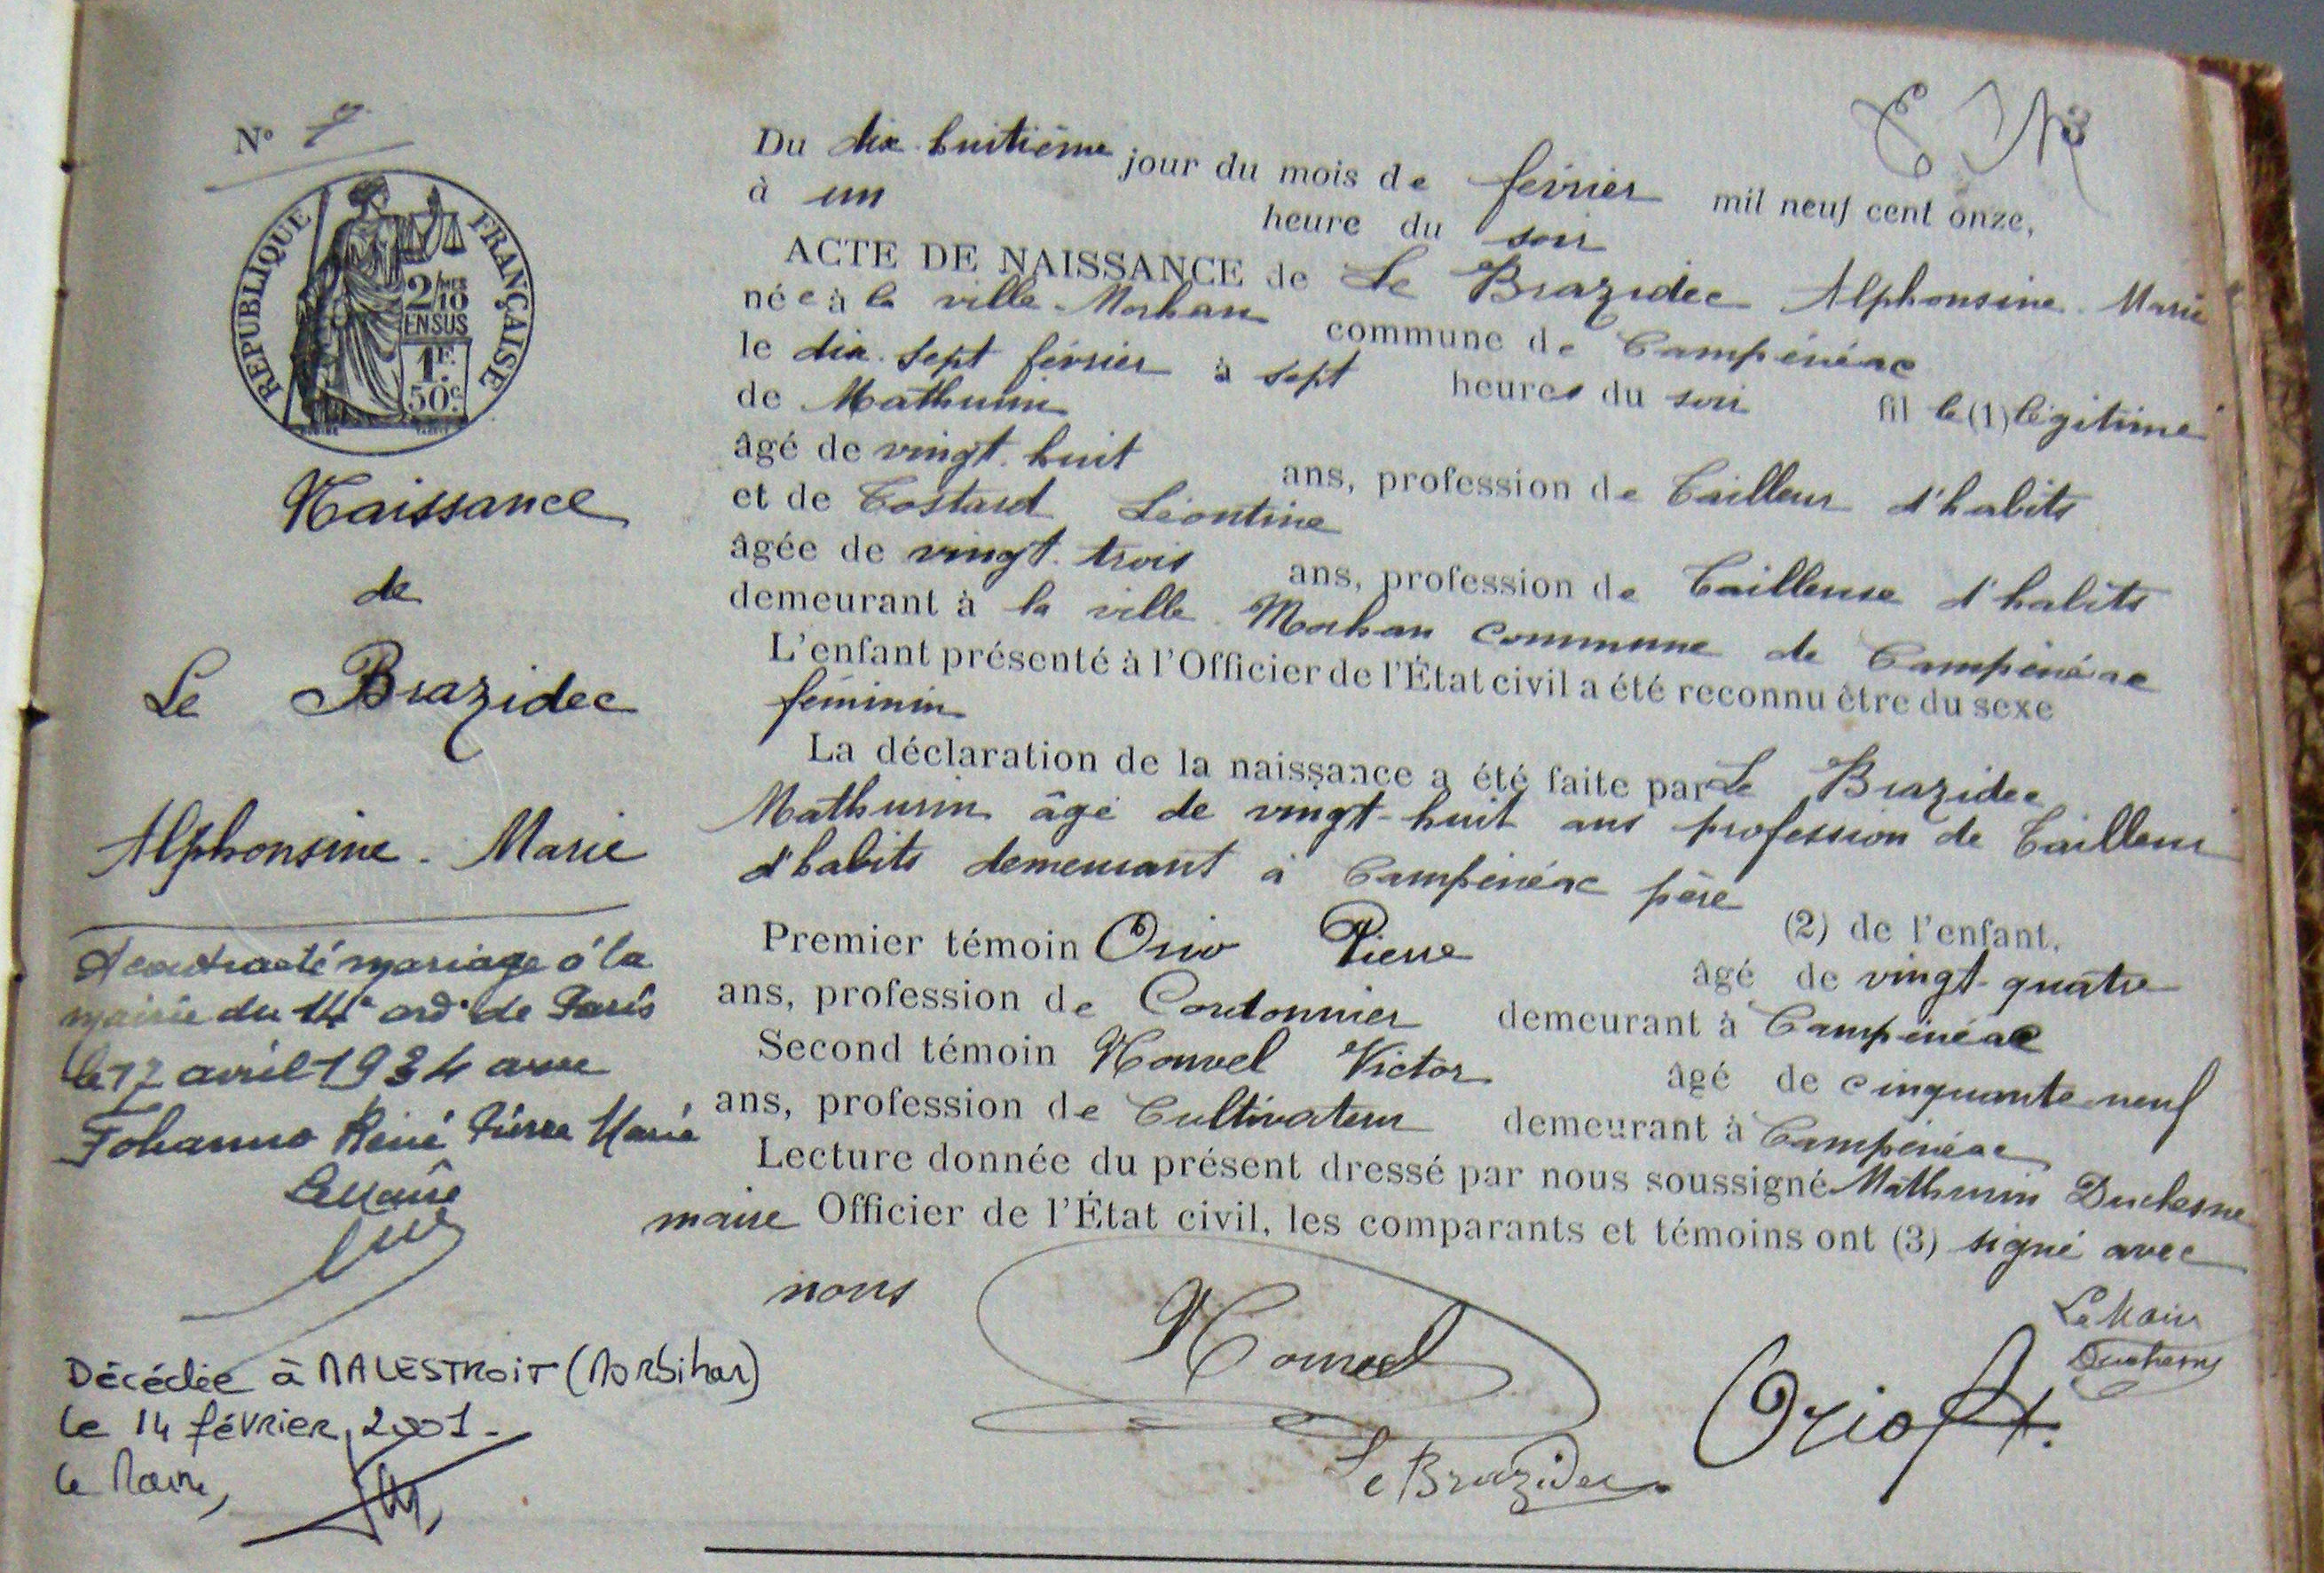 N° 7
RÉPUBLIQUE FRANÇAISE
2/MES 10
EN SUS
1F.
50c.
Naissance
de
Le Brazidec
Alphonsine - Marie
A contracté mariage à la
mairie du 14e ard. de Paris
le 17 avril 1934 avec
Johanno René Pierre Marie
Le Maire
Décédée à MALESTROIT (Morbihan)
le 14 février 2001.
le Maire,
Du dix-huitième jour du mois de février mil neuf cent onze,
à un heure du soir
ACTE DE NAISSANCE de Le Brazidec Alphonsine Marie
née à la ville-Morhan commune de Campénéac
le dix-sept février à sept heures du soir fille (1) légitime
de Mathurin
âgé de vingt-huit ans, profession de Tailleur d'habits
et de Costard Léontine
âgée de vingt-trois ans, profession de Tailleuse d'habits
demeurant à la ville-Morhan commune de Campénéac
L'enfant présenté à l'Officier de l'État civil a été reconnu être du sexe
féminin
La déclaration de la naissance a été faite par Le Brazidec
Mathurin âgé de vingt-huit ans profession de Tailleur
d'habits demeurant à Campénéac père (2) de l'enfant,
Premier témoin Orio Pierre âgé de vingt-quatre
ans, profession de Cordonnier demeurant à Campénéac
Second témoin Nouvel Victor âgé de cinquante-neuf
ans, profession de Cultivateur demeurant à Campénéac
Lecture donnée du présent dressé par nous soussigné Mathurin Duchesne
maire Officier de l'État civil, les comparants et témoins ont (3) signé avec
nous
Nouvel
Le Maire
Duchesne
Orio P.
Le Brazidec